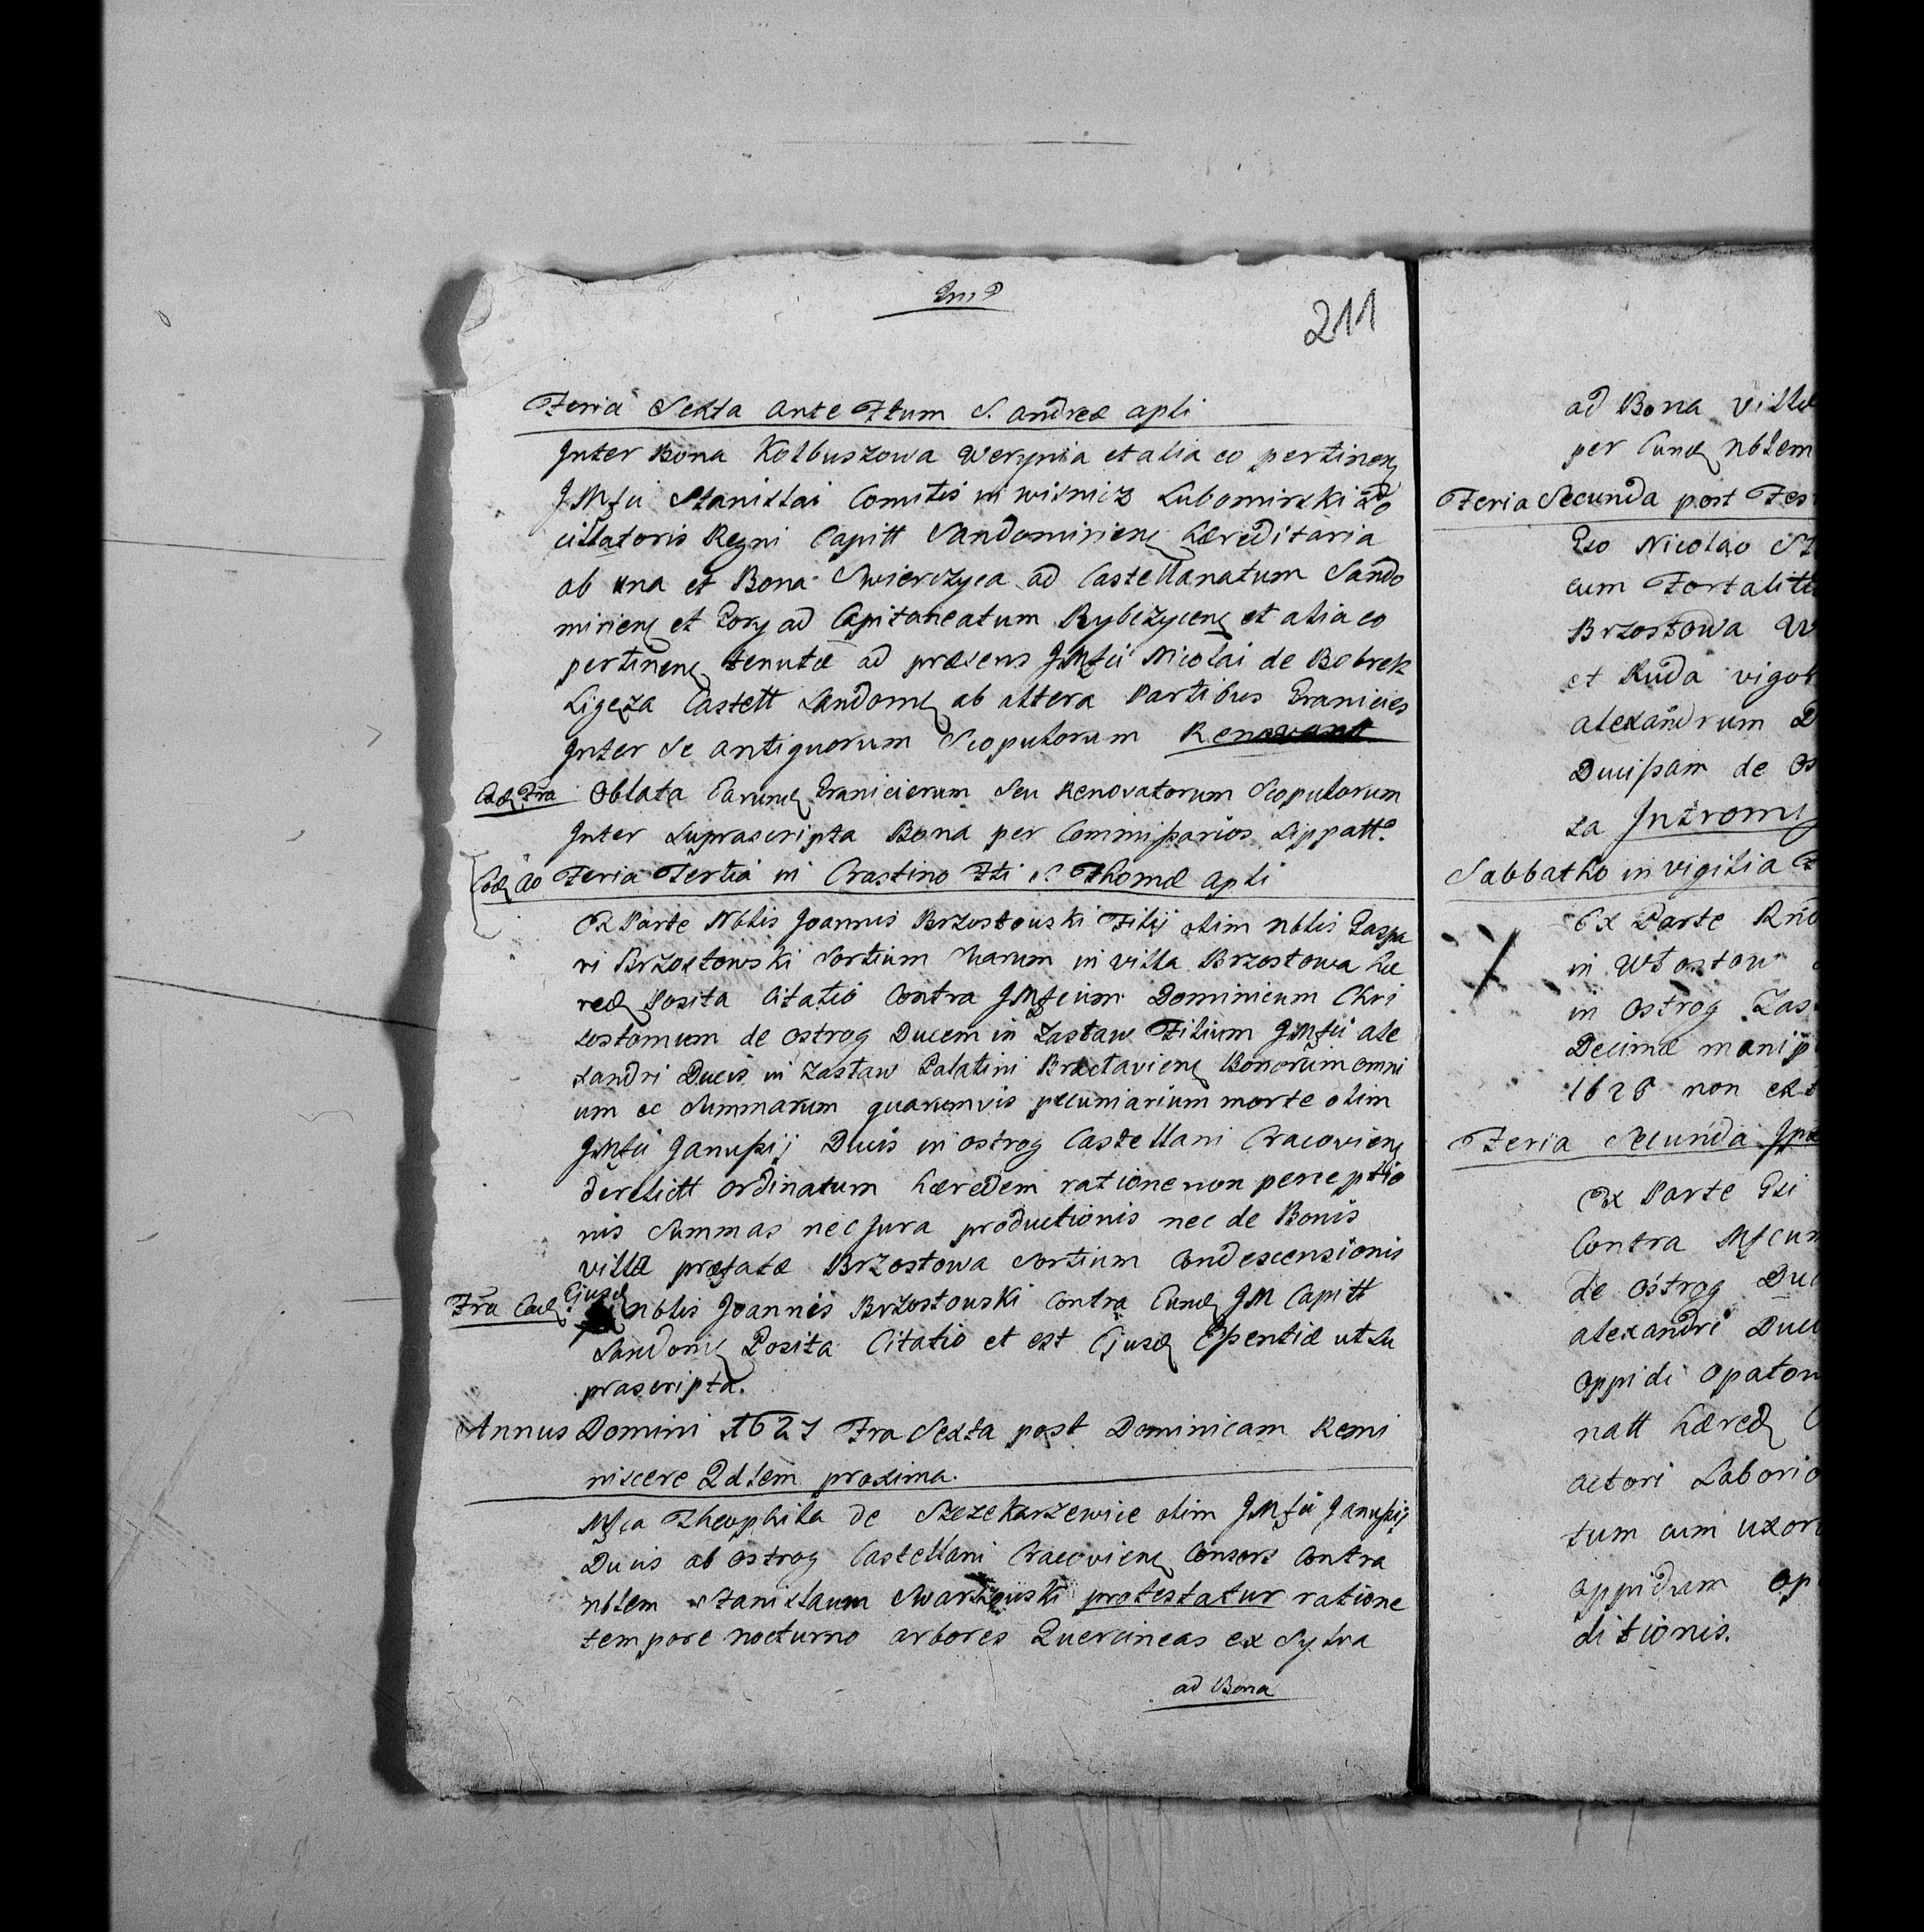 211
Feria Sexta ante Ftum S. Andreæ apli
Inter Bona Kolbuszowa Werynia et alia eo pertinen
JMfci Stanislai Comitis in Wisnicz Lubomirski Po
cillatoris Regni Capitt Sandomirien hæreditaria
ab una et Bona Swierczyca ad Castellanatum Sando
mirien et ad Capitaneatum Rybczycen et alia eo
pertinen tenutæ ad præsens JMfci Nicolai de Bobrek
Ligęza Castell Sandom ab altera Partibus Granicies
Inter se antiquorum Scopulorum
Ead Fra Oblata Earund Granicierum Seu Renovatorum Scopulorum
Inter Suprascripta Bona per Commissarios
Eod Ao Feria Tertia in Crastino Fti S. Thomæ Apli
Ex Parte Nblis Joannis Brzostowski Filij olim nblis Gaspa
ri Brzostowski Sortium Suarum in villa Brzostowa hæ
red Posita Citatio Contra JMfcum Dominicum Chri
sostomum de Ostrog Ducem in Zasław Filium JMfci Ale
xandri Ducis in Zasław Palatini Bractavien Bonorum omni
um ac Summarum quarumvis pecuniarium morte olim
JMfci Janussij Ducis in Ostrog Castellani Cracovien
derelict ordinatum hæredem ratione non perceptio
nis Summas nec Jura productionis nec de Bonis
villæ præfatæ Brzostowa Sortium Condescensionis
Fra Ead Ejusd nblis Joannis Brzostouski Contra Eund JM Capitt
Sandom Posita Citatio et est Ejusd Essentiæ ut su
prascripta.
Annus Domini 1627 Fra Sexta post Dominicam Remi
niscere Qdlem proxima.
Mfca Theophila de Szczekarzewice olim JMfci Janussij
Ducis ab Ostrog Castellani Cracovien Consors Contra
nblem Stanislaum protestatur ratione
tempore nocturno arbores Quercineas ex Sylva
ad Bona
ad Bona villæ
per Eund nblem
Feria Secunda post Fes
Gso Nicolao
cum Fortalit
Brzostowa
et Ruda
alexandrum D
Ducissam de Os
Introm
Sabbatho in vigilia
Ex Parte
in Włostow
in Ostrog Zas
Decimæ manip
1628 non
Feria Secunda
Ex Parte Gsi
Contra Mfcum
de Ostrog Duc
alexandri Duc
oppidi Opatow
natt hæred
actori Laborio
tum cum uxor
oppidum Op
ditionis.